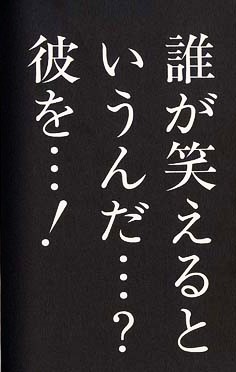 誰が笑えると
いうんだ…?
彼を…!